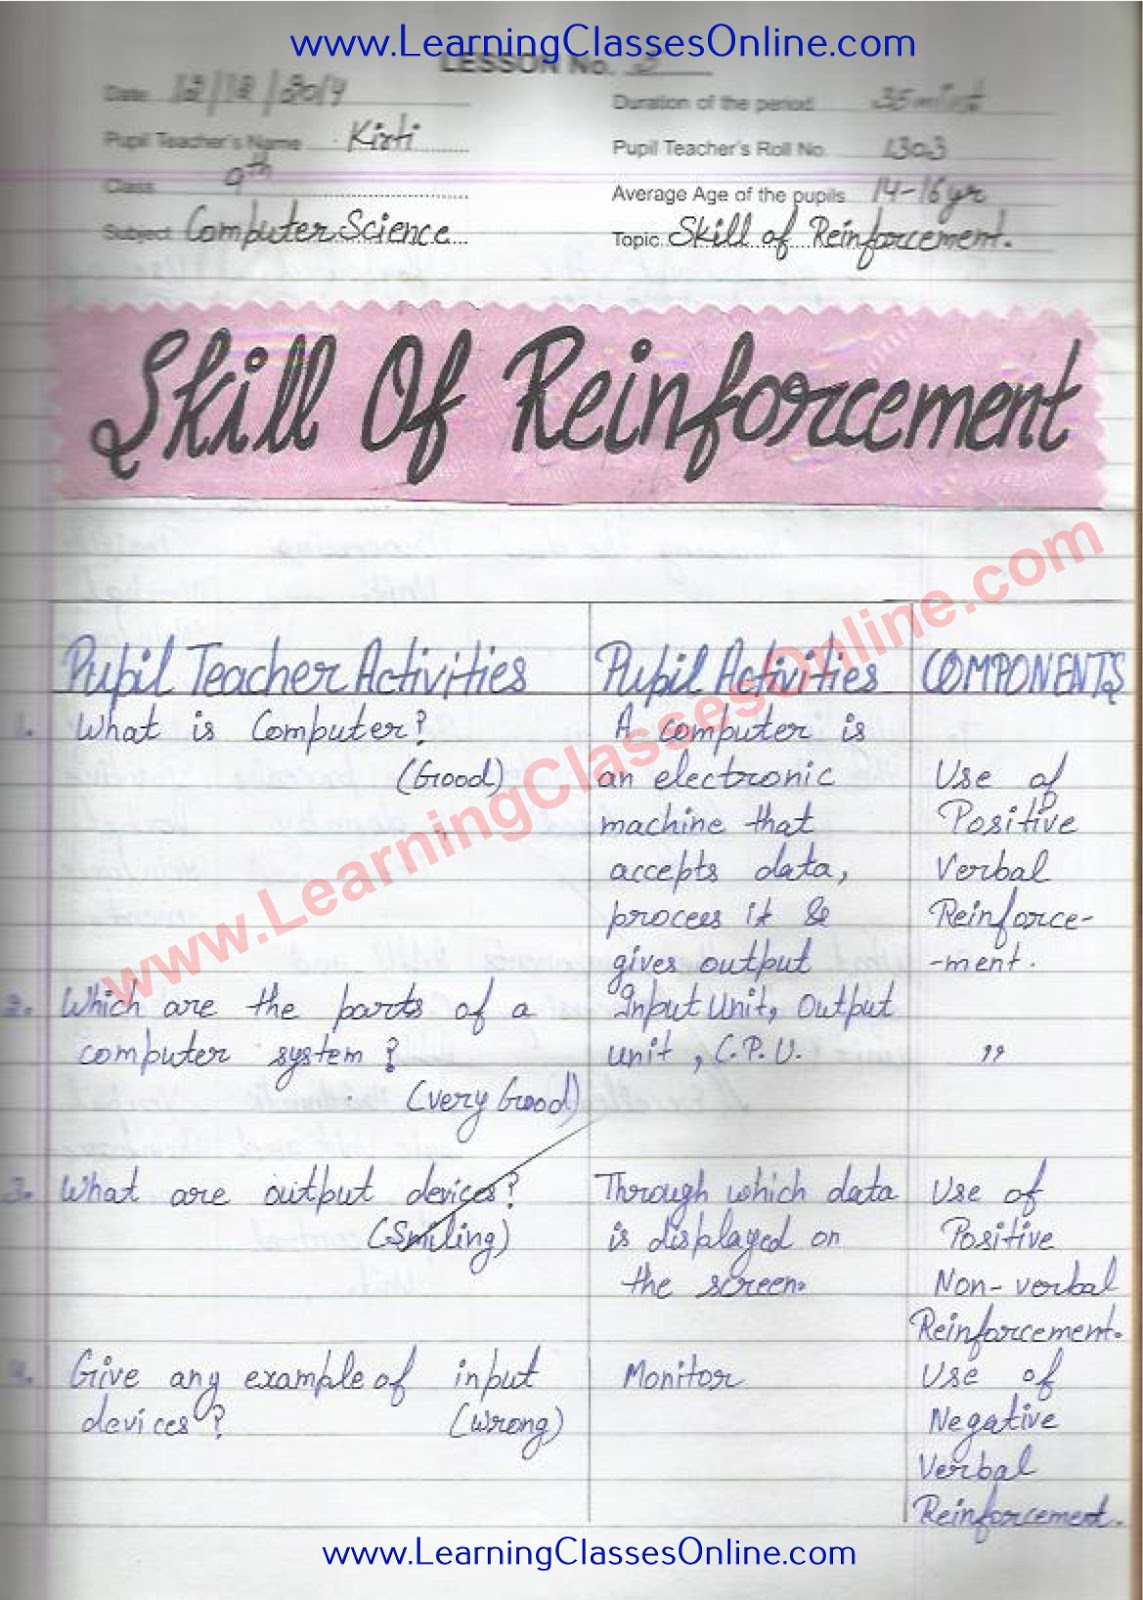 www.LearningClassesOnline.com
LESSON No.
Date 12/12/2014 Duration of the period 35 mint
Pupil Teacher's Name Kirti Pupil Teacher's Roll No. 1303
Class 9th Average Age of the pupils 14-16yr
Subject Computer Science Topic Skill of Reinforcement.
Skill Of Reinforcement
www.LearningClassesOnline.com
Pupil Teacher Activities Pupil Activities COMPONENTS
1. What is Computer? A computer is
(Good) an electronic Use of
machine that Positive
accepts data, Verbal
process it & Reinforce-
gives output -ment.
2. Which are the parts of a Input Unit, Output
computer system? unit, C.P.U. ,,
(Very Good)
3. What are output devices? Through which data Use of
(Smiling) is displayed on Positive
the screen. Non-verbal
Reinforcement.
4. Give any example of input Monitor Use of
devices? (Wrong) Negative
Verbal
Reinforcement.
www.LearningClassesOnline.com